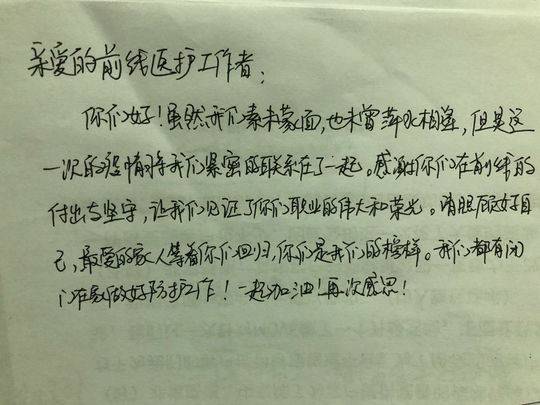 亲爱的前线医护工作者：
你们好！虽然我们素未蒙面，也未曾萍水相逢，但是这
一次的疫情将我们紧密的联系在了一起。感谢你们在前线的
付出与坚守，让我们见证了你们职业的伟大和荣光。请照顾好自
己，最爱的家人等着你们回归，你们是我们的榜样。我们都有闭
门在家做好防护工作！一起加油！再次感恩！